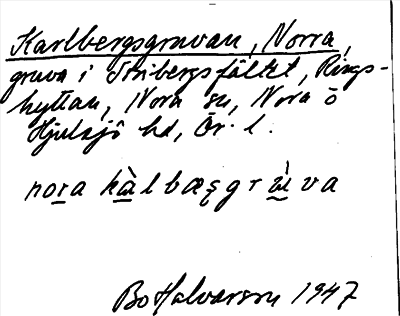 Karlbergsgruvan, Norra,
gruva i Stribergsfältet, Rings-
hyttan, Nora sn, Nora o
Hjulsjö hd, Ör. l.
nora kàlbæsgrùva
Bo Halvarson 1947